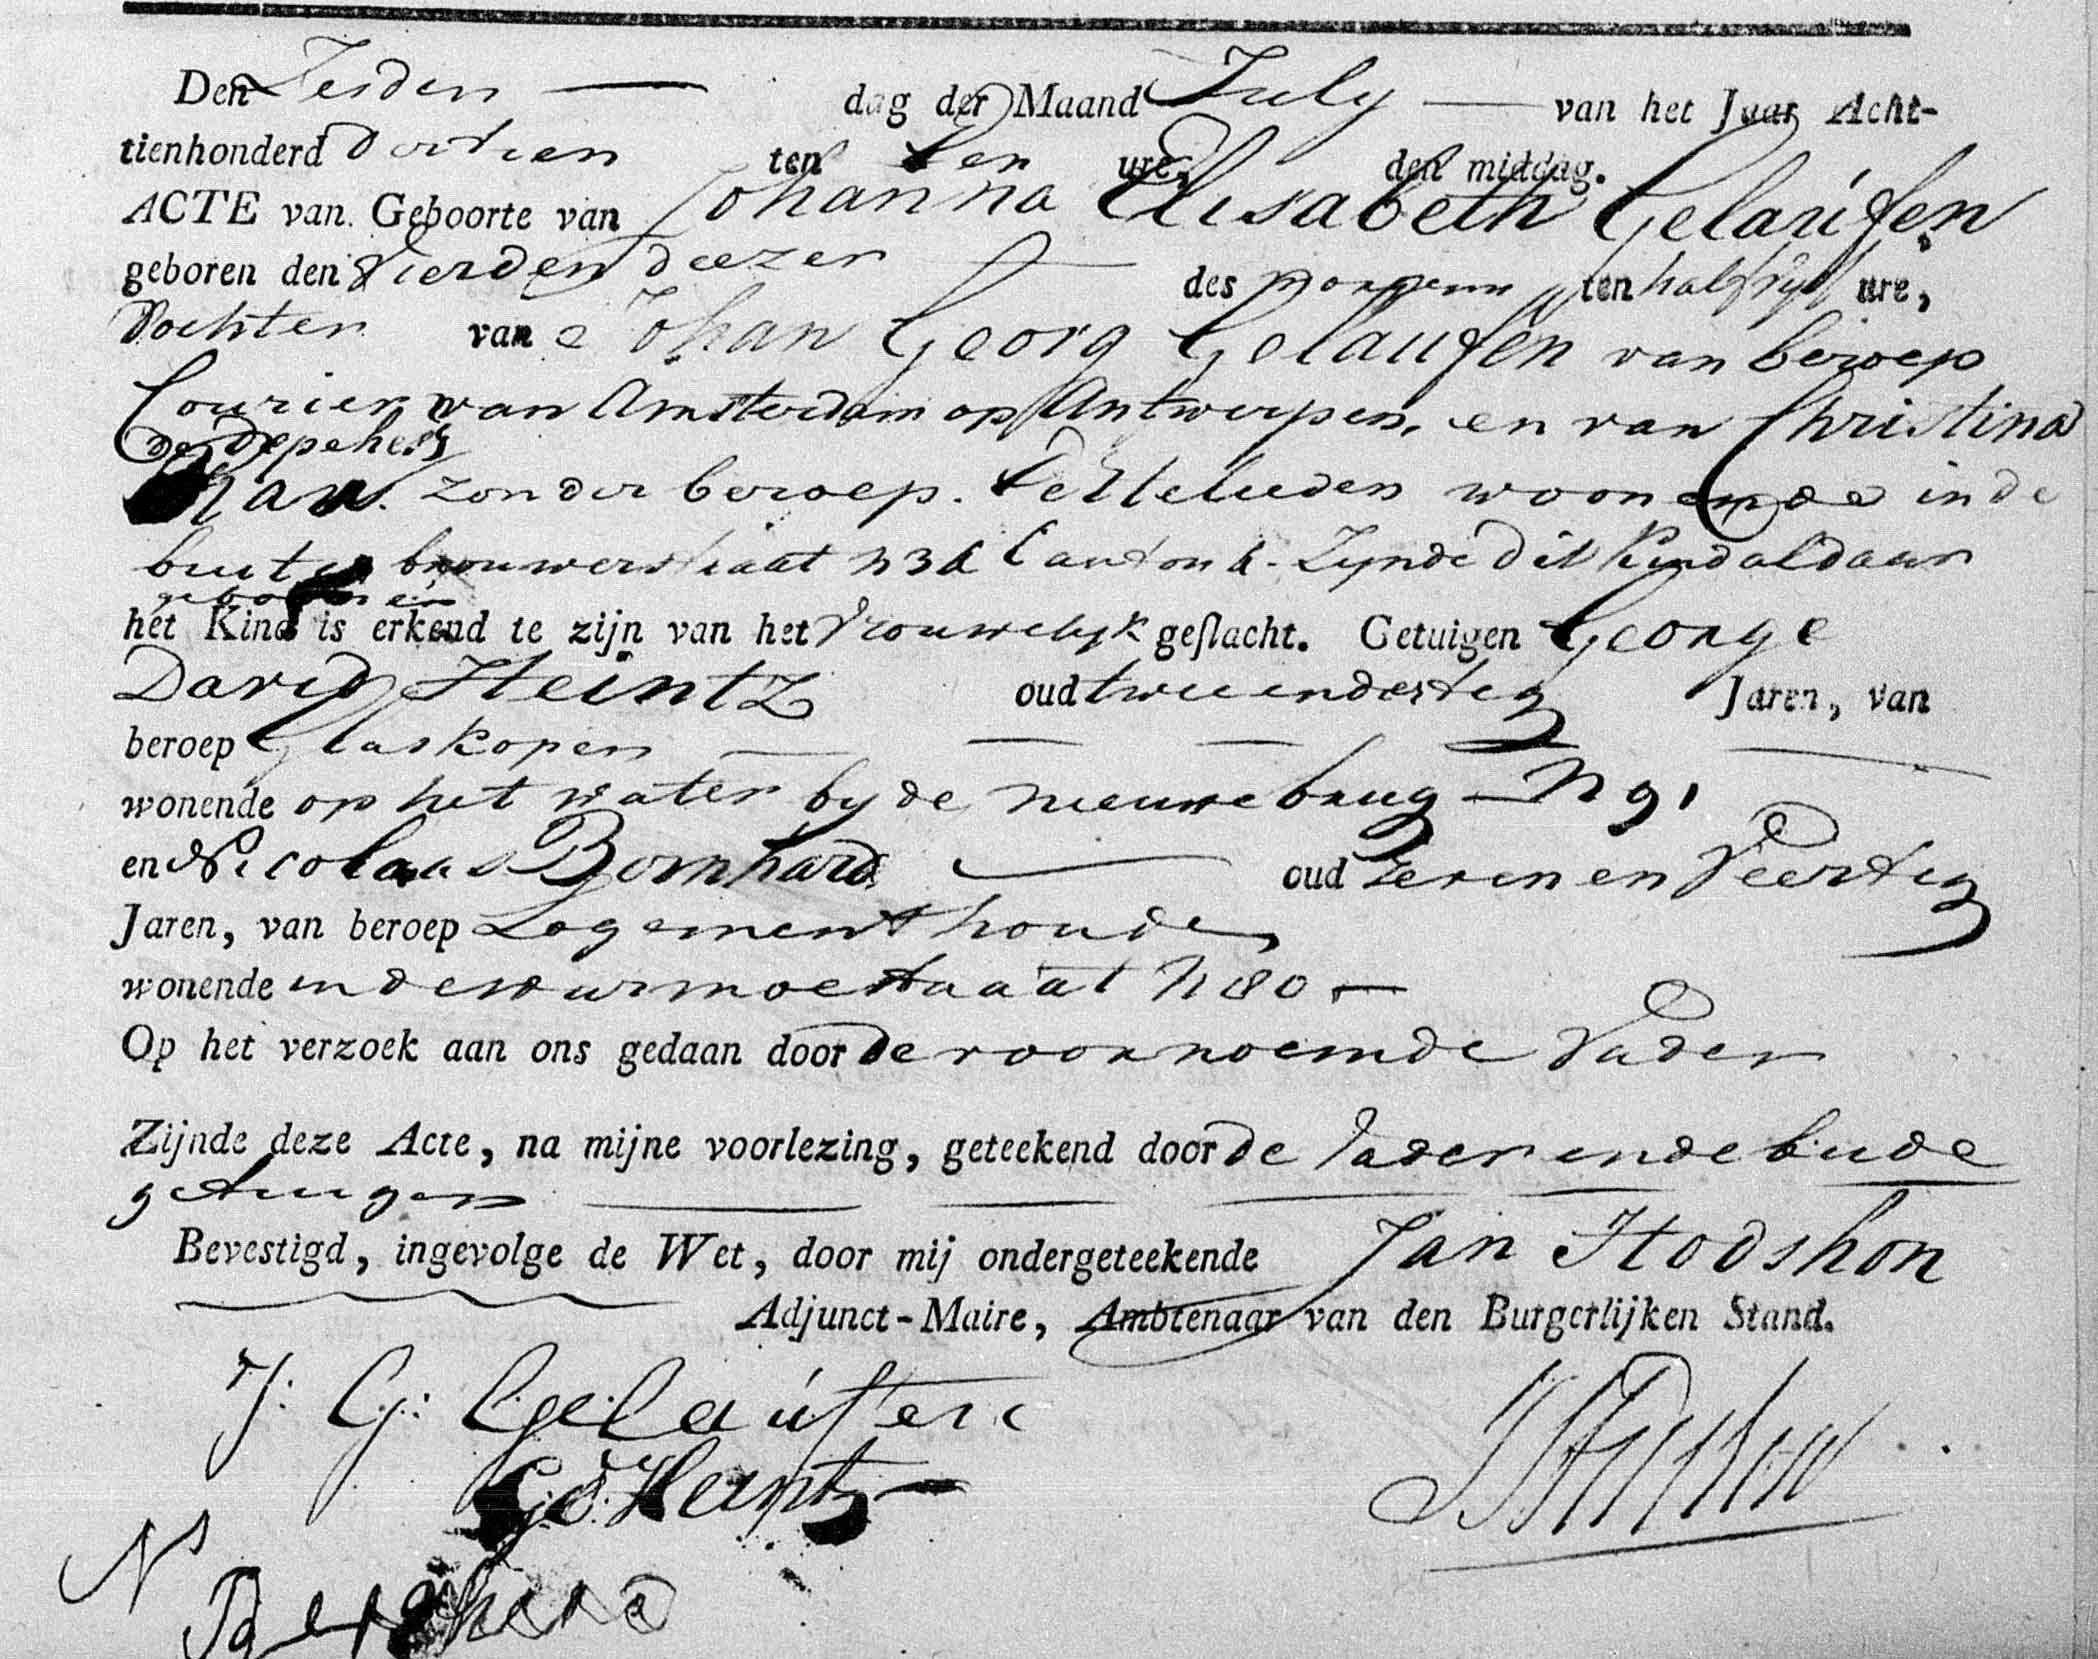 Den Zesden dag der Maand July van het Jaar Acht-
tienhonderd dertien ten een ure, des middag.
ACTE van Geboorte van Johanna Elisabeth Gelaufen
geboren den Vierden deezer des morgens ten half vyf ure,
Dochter van Johan Georg Gelaufen van beroep
Courier van Amsterdam op Antwerpen, en van Christina
zonder beroep. Echtelieden woonende in de
brouwerstraat N 36 Canton 6. Zynde dit Kind aldaar
gebooren
het Kind is erkend te zijn van het Vrouwelyk geslacht. Getuigen George
David Heintz oud twee en dertig Jaren, van
beroep Glaskoper
wonende op het water by de nieuwe brug N 91
en Nicolaas Bornhard oud zeven en Veertig
Jaren, van beroep Logement houder
wonende in de warmoestraat N 80
Op het verzoek aan ons gedaan door de voornoemde Vader
Zijnde deze Acte, na mijne voorlezing, geteekend door de Vader en de beide
getuigen
Bevestigd, ingevolge de Wet, door mij ondergeteekende Jan Hodshon
Adjunct-Maire, Ambtenaar van den Burgerlijken Stand.
J: G: Gelaufen
G: D: Heintz
N